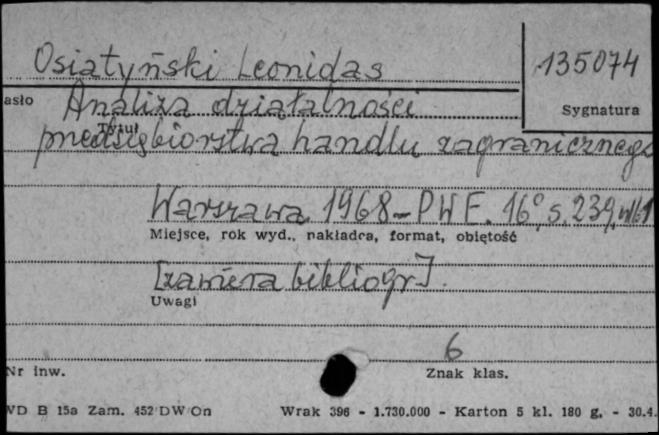 Osiatyński Leonidas
135074
asło
Analiza działalności
Sygnatura
Tytuł
przedsiębiorstwa handlu zagranicznego
Warszawa 1968 - PWE. 16°, s. 239,
Miejsce, rok wyd., nakładca, format, objętość
[zawiera bibliogr].
Uwagi
6
Nr inw.
Znak klas.
WD B 15a Zam. 452/DW/On
Wrak 396 - 1.730.000 - Karton 5 kl. 180 g. - 30.4.